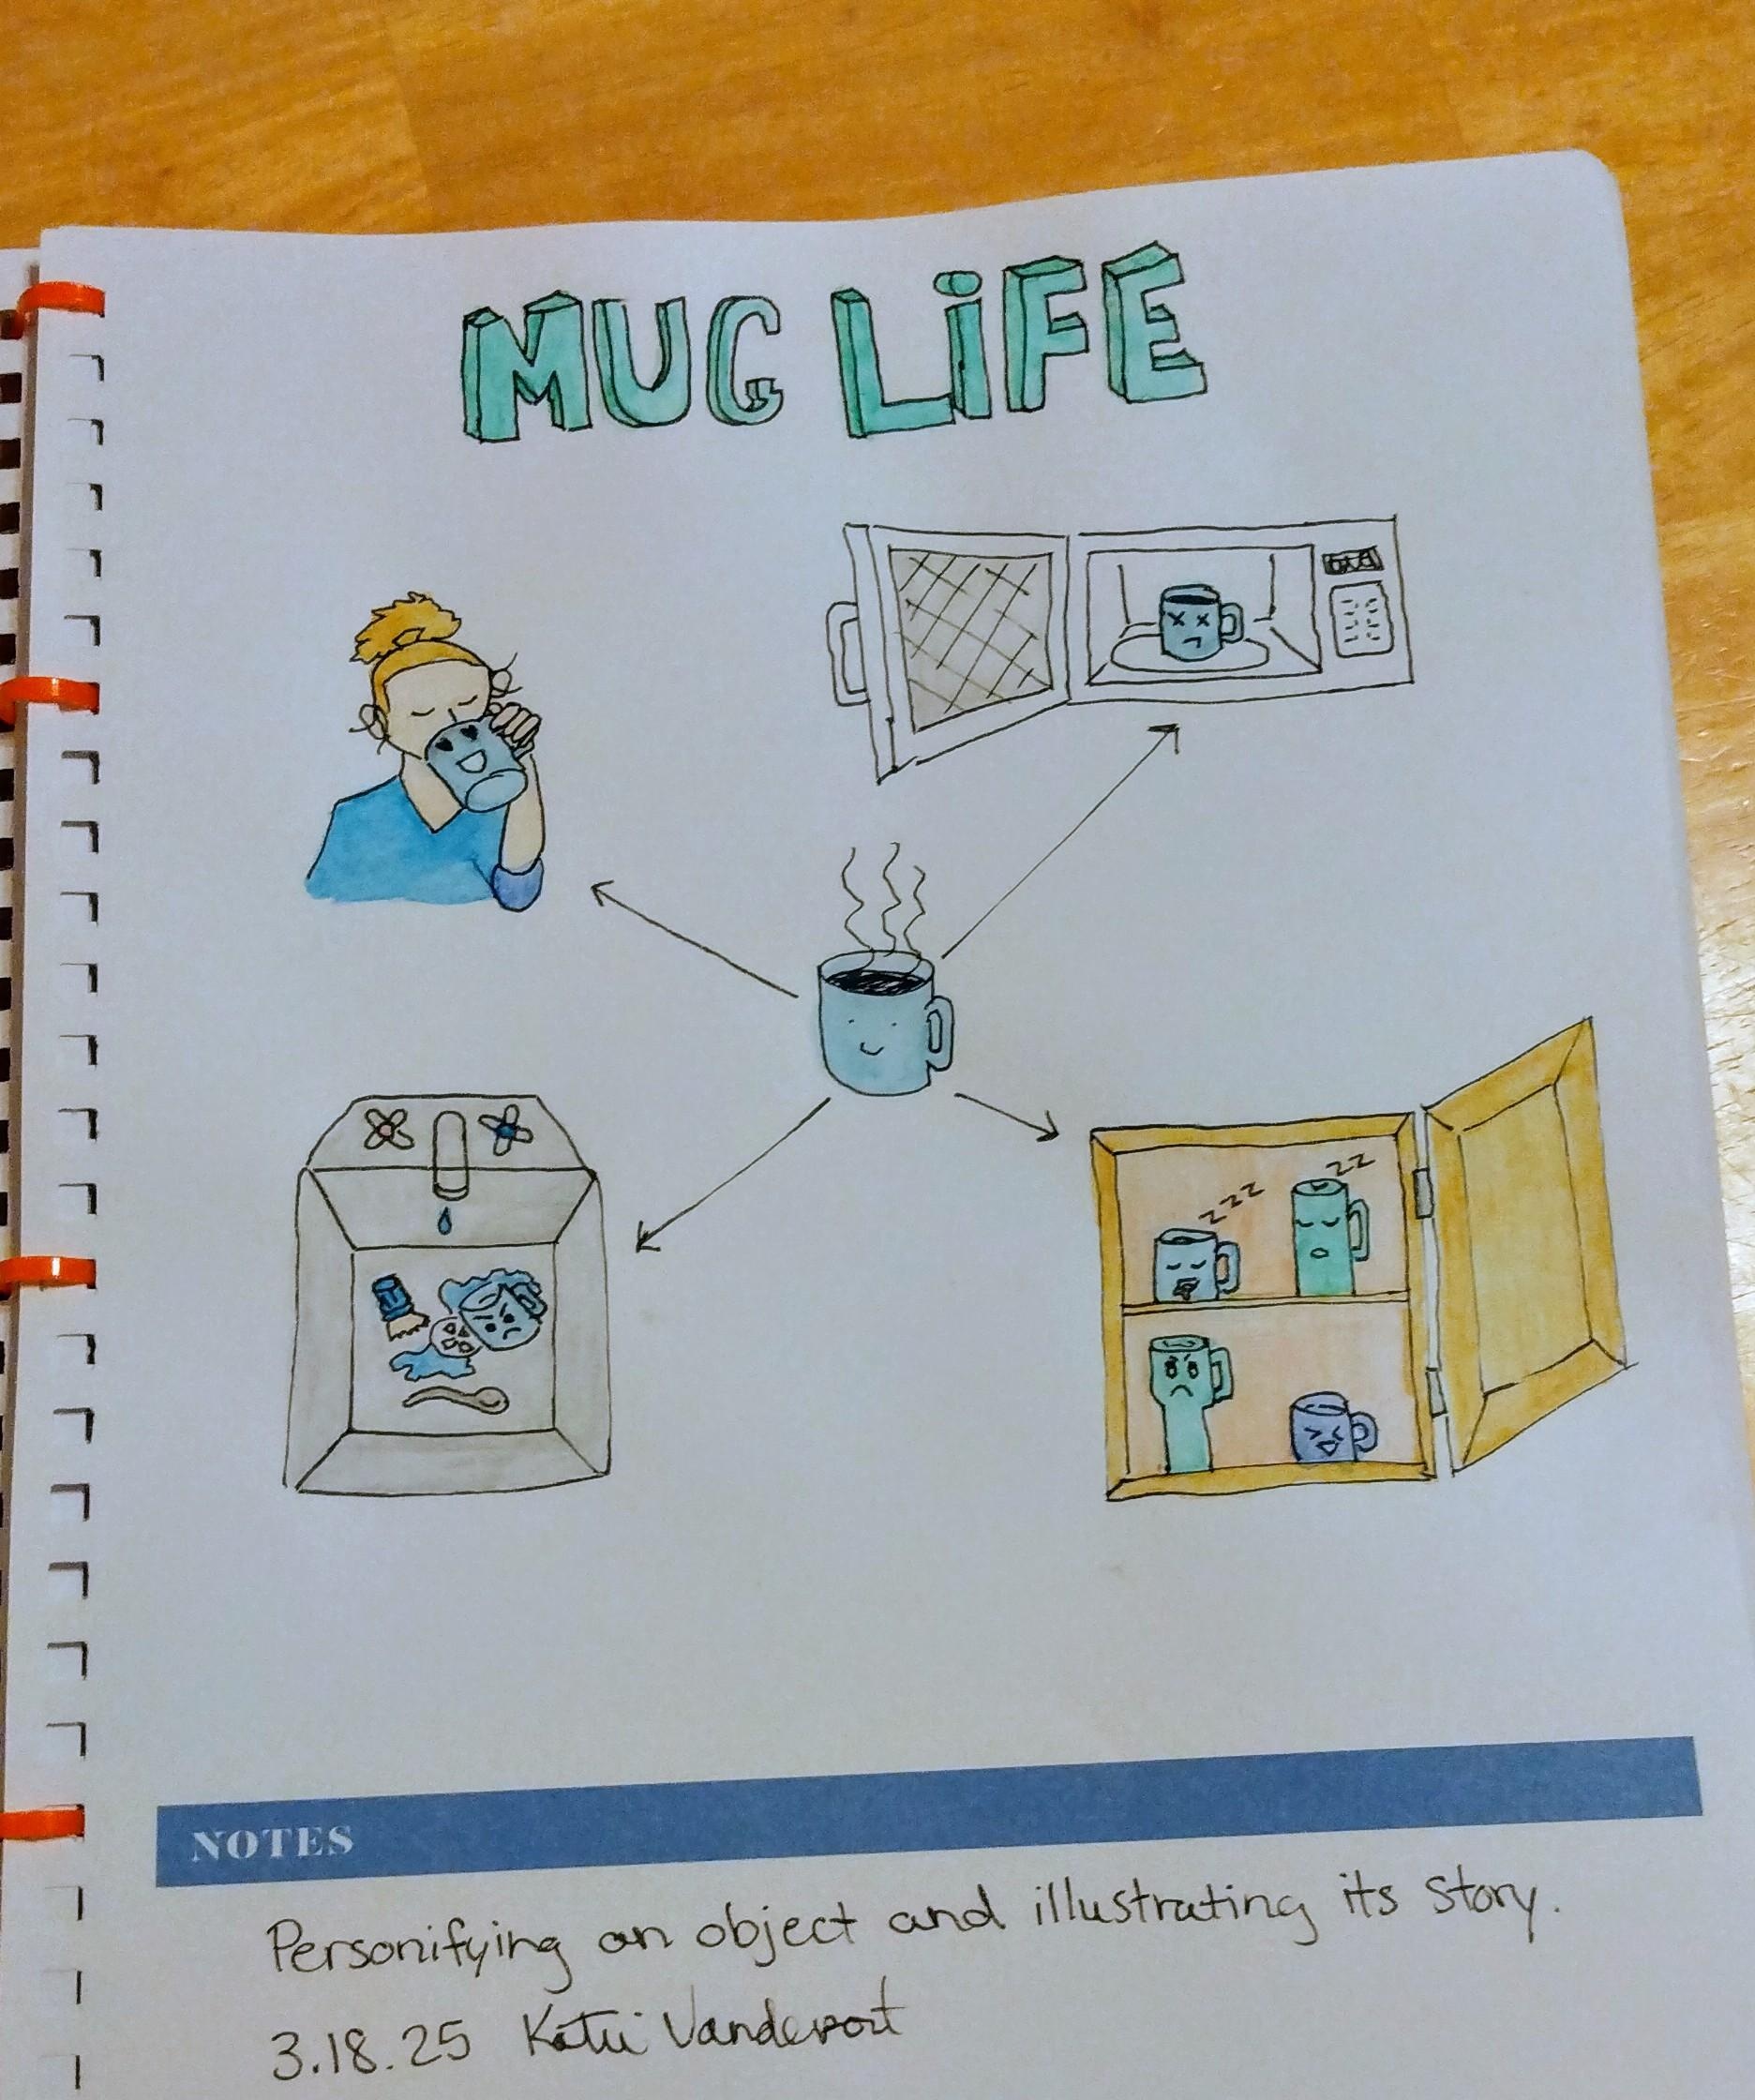 MUG LiFE
zzz
zz
NOTES
Personifying an object and illustrating its story.
3.18.25 Katie Vandervort